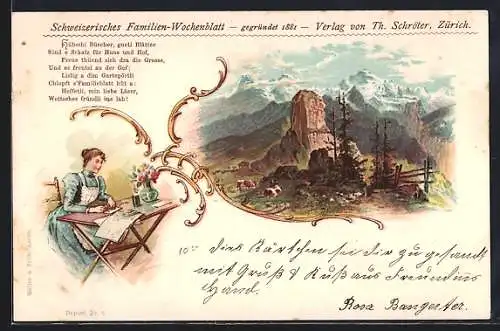 Schweizerisches Familien-Wochenblatt — gegründet 1881 — Verlag von Th. Schröter, Zürich.
Hübschi Büecher, gueti Blätter
Sind e Schatz für Huus und Hof,
Freue thüend sich dra die Grosse,
Und es freulzi uf der Gof;
Lislig a dim Gartepörtli
Chlopft s'Familieblatt hüt a:
Hoffetli, min liebe Läser,
Weitsches fründli ine lah!
dies Kärtchen sei dir zu gesandt
mit Gruß & Kuß aus Freundin's
Hand.
Rosa Bangerter.
Depost Nr. 6